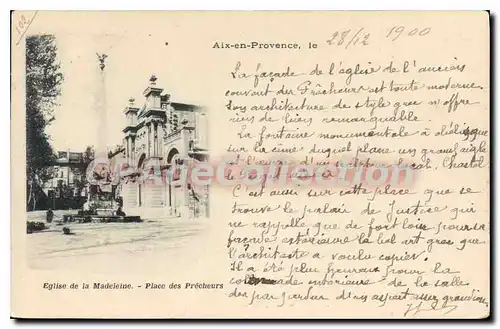 102
Aix-en-Provence, le 28/12 1900
La façade de l'église de l'ancien
couvent des Prêcheurs est toute moderne.
Son architecture de style grec n'offre
rien de bien remarquable.
La fontaine monumentale a obélisque
sur la cime duquel plane un grand aigle
est l'œuvre d'un artiste local, Chastel
C'est aussi sur cette place que se
trouve le palais de Justice qui
ne rappelle que de fort loin par sa
façade extérieure l'art grec que
l'architecte a voulu copier.
Il a été plus heureux pour la
intérieure de la salle
des pas perdus d'un aspect assez grandiose
Eglise de la Madeleine. - Place des Prêcheurs